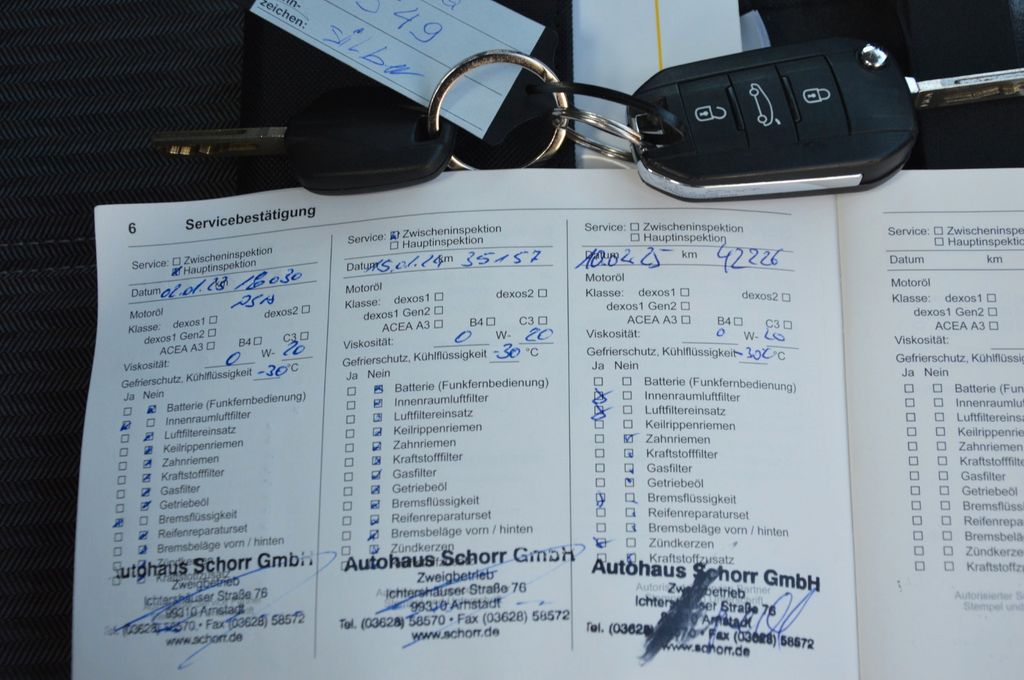 549
zeichen:
silber
6 Servicebestätigung
Service: ☐ Zwischeninspektion
☒ Hauptinspektion
Datum 02.01.23
Motoröl
Klasse: dexos1 ☐ dexos2 ☐
dexos1 Gen2 ☐
ACEA A3 ☐ B4 ☐ C3 ☐
Viskosität: 0 W- 20
Gefrierschutz, Kühlflüssigkeit -30 °C
Ja Nein
Batterie (Funkfernbedienung)
Innenraumluftfilter
Luftfiltereinsatz
Keilrippenriemen
Zahnriemen
Kraftstofffilter
Gasfilter
Getriebeöl
Bremsflüssigkeit
Reifenreparaturset
Bremsbeläge vorn / hinten
Autohaus Schorr GmbH
Zweigbetrieb
Ichtershäuser Straße 76
99310 Arnstadt
Tel. (03628) 58570 • Fax (03628) 58572
www.schorr.de
Service: ☒ Zwischeninspektion
☐ Hauptinspektion
Datum 15.01.24 km 35157
Motoröl
Klasse: dexos1 ☐ dexos2 ☐
dexos1 Gen2 ☐
ACEA A3 ☐ B4 ☐ C3 ☐
Viskosität: 0 W- 20
Gefrierschutz, Kühlflüssigkeit -30 °C
Ja Nein
Batterie (Funkfernbedienung)
Innenraumluftfilter
Luftfiltereinsatz
Keilrippenriemen
Zahnriemen
Kraftstofffilter
Gasfilter
Getriebeöl
Bremsflüssigkeit
Reifenreparaturset
Bremsbeläge vorn / hinten
Zündkerzen
Autohaus Schorr GmbH
Zweigbetrieb
Ichtershäuser Straße 76
99310 Arnstadt
Tel. (03628) 58570 • Fax (03628) 58572
www.schorr.de
Service: ☐ Zwischeninspektion
☐ Hauptinspektion
Datum 10.02.25 km 42226
Motoröl
Klasse: dexos1 ☐ dexos2 ☐
dexos1 Gen2 ☐
ACEA A3 ☐ B4 ☐ C3 ☐
Viskosität: 0 W- 20
Gefrierschutz, Kühlflüssigkeit -30 °C
Ja Nein
Batterie (Funkfernbedienung)
Innenraumluftfilter
Luftfiltereinsatz
Keilrippenriemen
Zahnriemen
Kraftstofffilter
Gasfilter
Getriebeöl
Bremsflüssigkeit
Reifenreparaturset
Bremsbeläge vorn / hinten
Zündkerzen
Kraftstoffzusatz
Autohaus Schorr GmbH
Zweigbetrieb
Ichtershäuser Straße 76
Arnstadt
Tel. (03628) 58570 • Fax (03628) 58572
www.schorr.de
Service: ☐ Zwischeninspe
☐ Hauptinspektion
Datum km
Motoröl
Klasse: dexos1 ☐
dexos1 Gen2 ☐
ACEA A3 ☐
Viskosität:
Gefrierschutz, Kühlflüssigk
Ja Nein
Batterie (Fun
Innenrauml
Luftfiltereins
Keilrippenrie
Zahnriemen
Kraftstofffilt
Gasfilter
Getriebeöl
Bremsflüss
Reifenrepa
Bremsbeläg
Zündkerzen
Kraftstoffzu
Autorisierter S
Stempel und